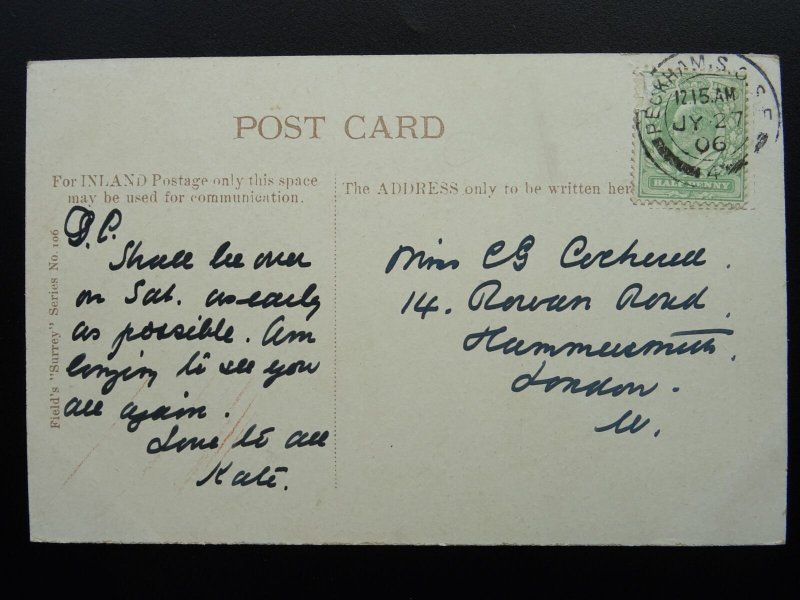 POST CARD
For INLAND Postage only this space
may be used for communication.
The ADDRESS only to be written her
PECKHAM. S.O. S.E.
12 15. AM
JY 27
06
HALF PENNY
Field's "Surrey" Series No. 106
Shall be over
on Sat. as early
as possible. Am
longing to see you
all again.
Love to all
Kate.
Miss CG Cockerell.
14. Rowan Road,
Hammersmith.
London.
W.